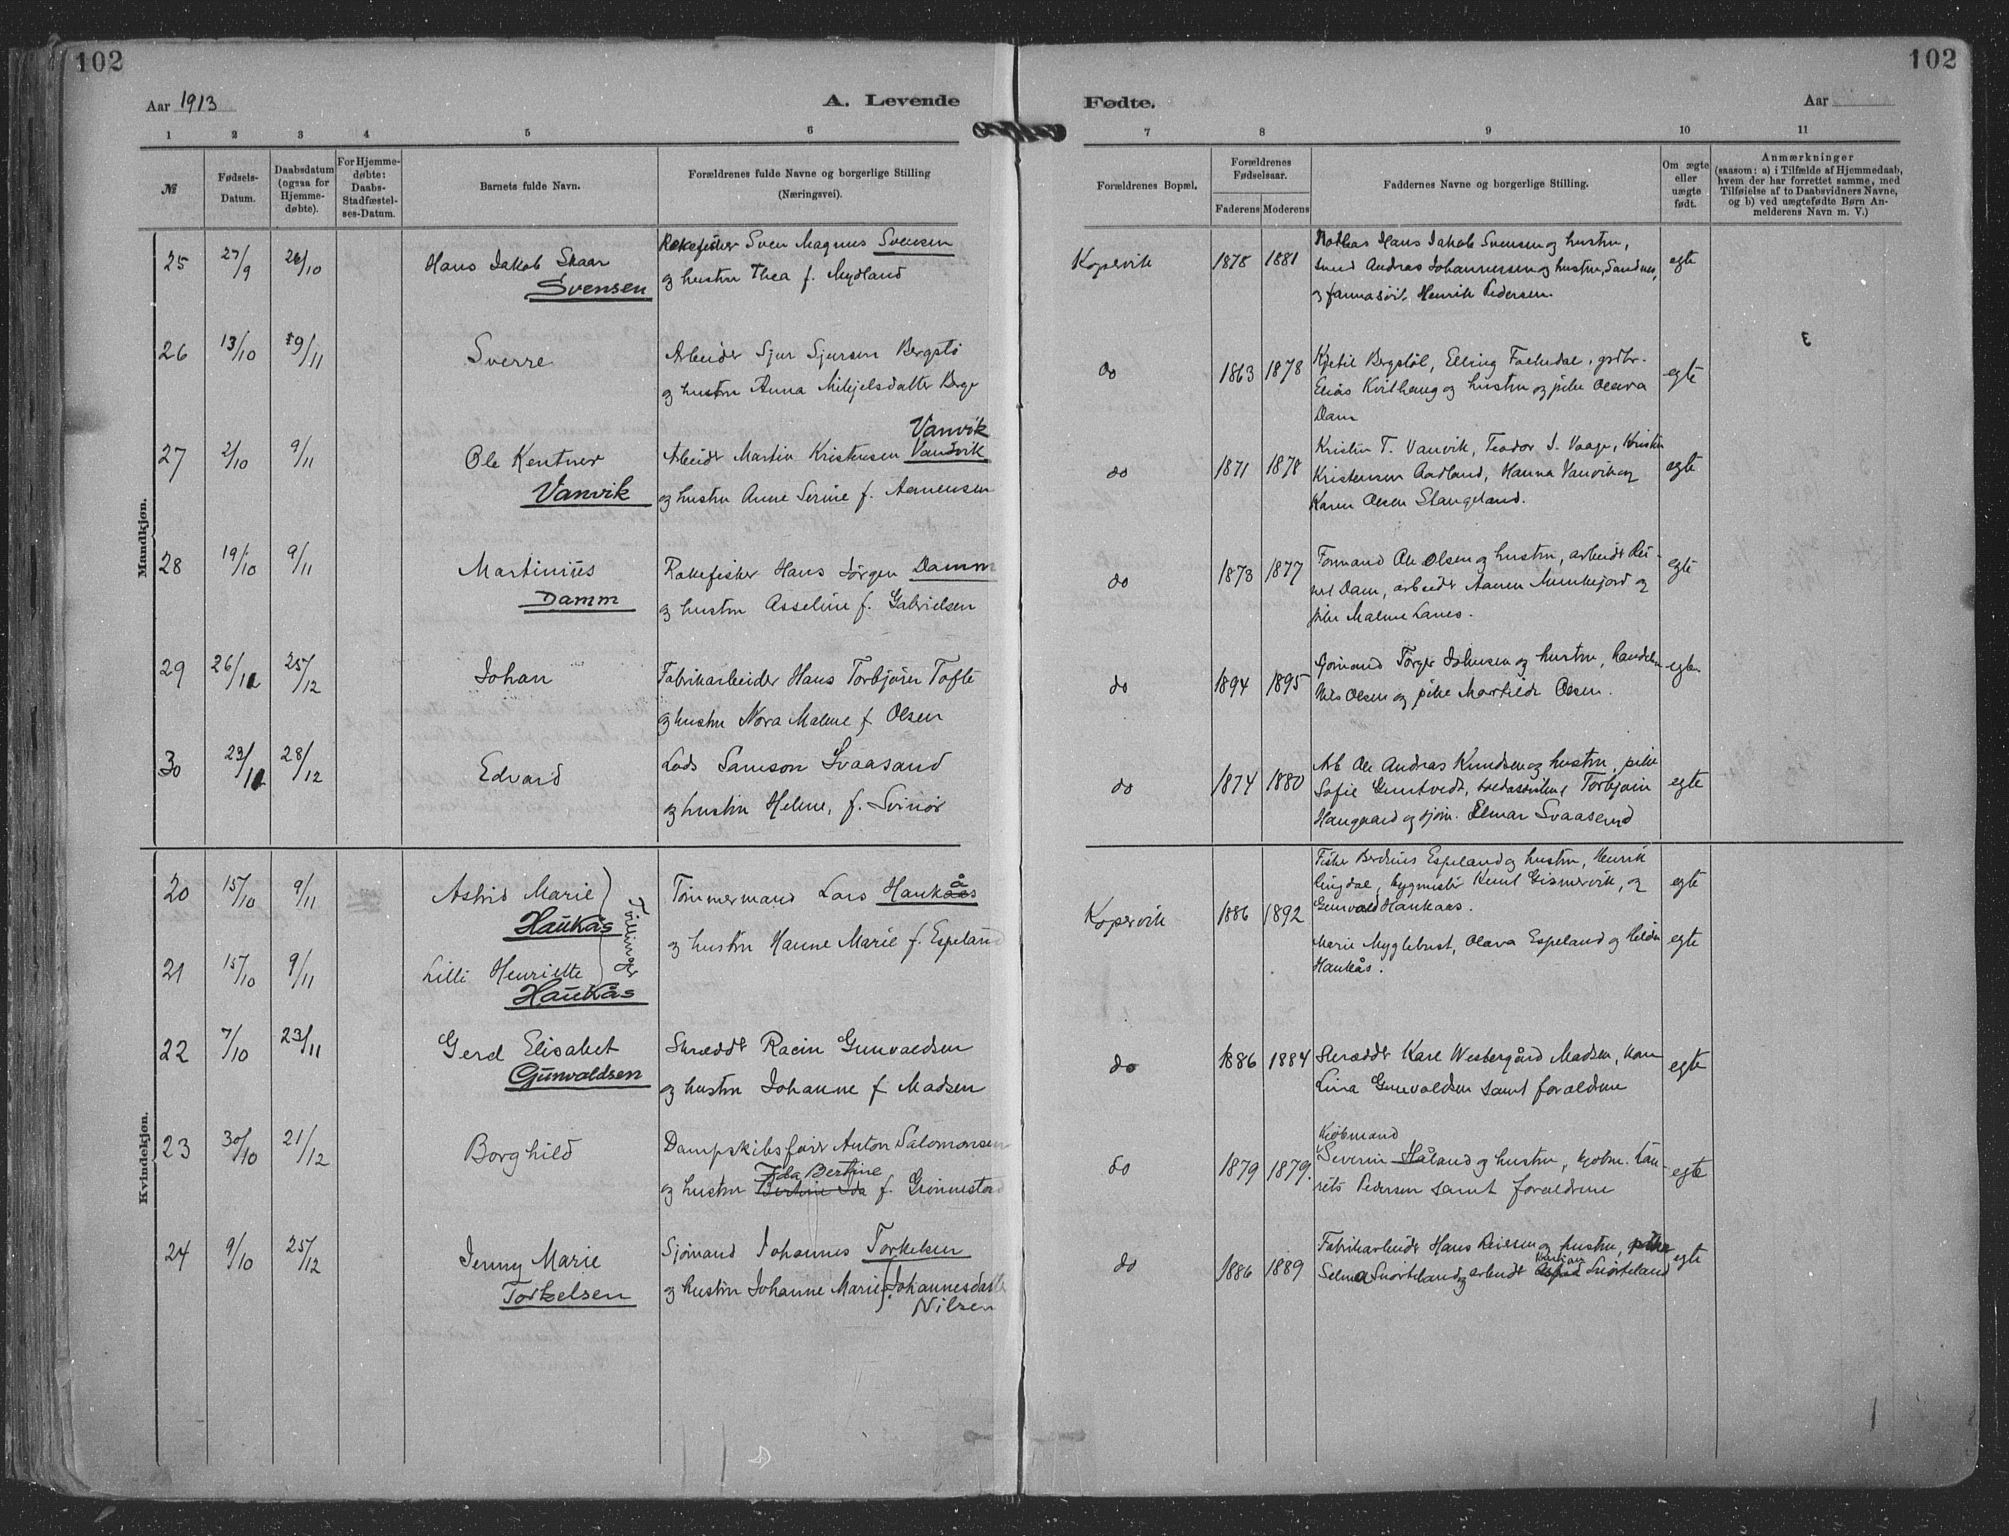 102
102
Aar 1913
A. Levende
Fødte.
Aar
1 2 3 4 5 6 7 8 9 10 11
№
Fødsels-
Datum.
Daabsdatum
(ogsaa for
Hjemme-
døbte).
For Hjemme-
døbte:
Daabs-
Stadfæstel-
ses-Datum.
Barnets fulde Navn.
Forældrenes fulde Navne og borgerlige Stilling
(Næringsvei).
Forældrenes Bopæl.
Forældrenes
Fødselsaar.
Faderens Moderens
Faddernes Navne og borgerlige Stilling.
Om ægte
eller
uægte
født.
Anmærkninger
(saasom: a) i Tilfælde af Hjemmedaab,
hvem der har forrettet samme, med
Tilføielse af to Daabsvidners Navne,
og b) ved uægtefødte Børn An-
melderens Navn m. V.)
Mandkjøn.
25 27/9 26/10
Hans Jakob Skaar
Svensen
Rekefisker Sven Magnus Svensen
og hustru Thea f. Mydland
Kopervik 1878 1881
Hans Jakob Svensen og hustru,
Andras Johannessen og hustru, Sandnes,
og Henrik Pedersen.
egte
26 13/10 9/11
Sverre
Arbeider Sjur Sjursen Bergstø
og hustru Anna Mikjelsdatter Berge
do 1863 1878
Kjetil Bergstøl, Elling
Elias Kvilhaug og hustru og pike Olava
Dam
egte
3
27 2/10 9/11
Ole Kentner
Vanvik
Vanvik
Arbeider Martin Kristensen Vandvik
og hustru Anne Serine f. Aanensen
do 1871 1878
Kristen T. Vanvik, Teodor J. Vaage, Kristen
Kristensen Aadland, Hanna Vanvik og
Karen Olsen Stangeland.
egte
28 19/10 9/11
Martinius
Damm
Rekefisker Hans Jørgen Damm
og hustru Asseline f. Gabrielsen
do 1873 1877
Formand Ole Olsen og hustru, arbeider
Dam, arbeider Aanen Munkejord og
pike Malene Lanes.
egte
29 26/11 25/12
Johan
Fabrikarbeider Hans Torbjørn Tofte
og hustru Nora Malene f. Olsen
do 1894 1895
Sjømand Torger Johnsen og hustru,
Nils Olsen og pike Martilde Olsen.
egte
30 23/11 28/12
Edvard
Lods Samson Svaasand
og hustru Helene, f. Svinør
do 1874 1880
Arb Ole Andras Knudsen og hustru, pike
Sofie Guntvedt, toldassistent Torbjørn
Haugaard og sjøm. Elmar Svaasand
egte
Kvindekjøn.
20 15/10 9/11
Astrid Marie
Haukås
Tvillinger
å
Tømmermand Lars Haukaas
og hustru Hanne Marie f. Espeland
Kopervik 1886 1892
Fisker Berdinus Espeland og hustru, Henrik
Lingdal, bygmester Knut Gismervik, og
Gunvald Haukaas.
egte
21 15/10 9/11
Lilli Henriette
Haukås
Marie Myglebust, Olava Espeland og Helder
Haukås.
egte
22 7/10 23/11
Gerd Elisabet
Gunvaldsen
Skrædder Racin Gunvaldsen
og hustru Johanne f. Madsen
do 1886 1884
Skrædder Karl Westergård Madsen,
Lina Gunvaldsen samt forældrene
egte
23 30/10 21/12
Borghild
Dampskibsfører Anton Salomonsen
Ida Bertine
og hustru Bertine Ida f. Grønnestad
do 1879 1879.
Kjøbmand
Severin Håland og hustru, kjøbm. Lau-
rits Pedersen samt forældrene
egte
24 9/10 25/12
Jenny Marie
Torkelsen
Sjømand Johannes Torkelsen
og hustru Johanne Marie f. Johannesdatter
Nilsen
do 1886 1889
Fabrikarbeider Hans Reiersen og hustru, pike
Selma Snørteland og arbeider Snørteland
egte